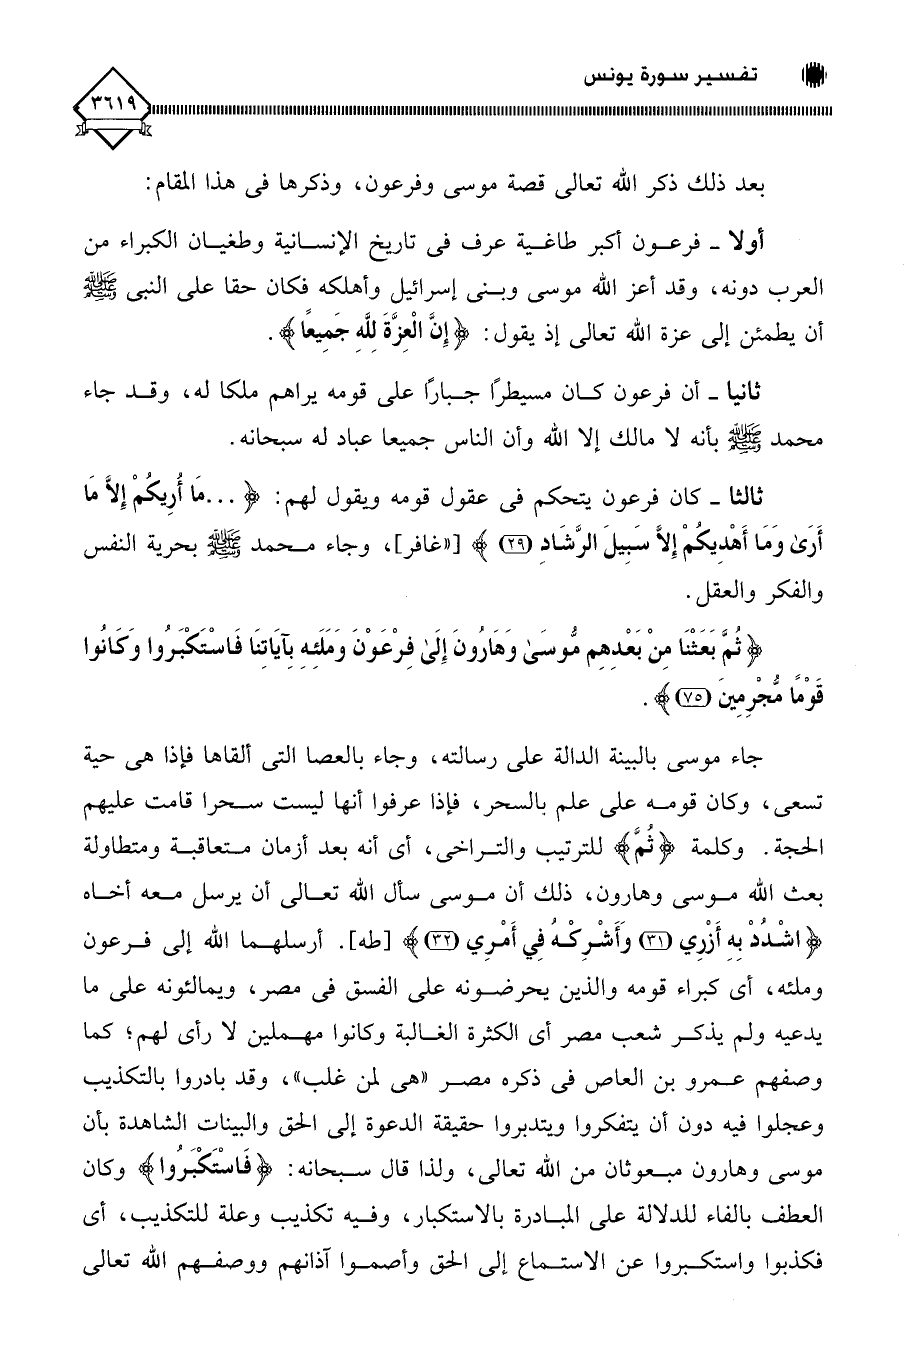 تفسير سورة يونس
٣٦١٩
بعد ذلك ذكر الله تعالى قصة موسى وفرعون، وذكرها فى هذا المقام:
أولا ـ فرعون أكبر طاغية عرف فى تاريخ الإنسانية وطغيان الكبراء من
العرب دونه، وقد أعز الله موسى وبنى إسرائيل وأهلكه فكان حقا على النبى ﷺ
أن يطمئن إلى عزة الله تعالى إذ يقول: ﴿إِنَّ الْعِزَّةَ لِلَّهِ جَمِيعًا﴾.
ثانيا ـ أن فرعون كان مسيطرًا جبارًا على قومه يراهم ملكا له، وقد جاء
محمد ﷺ بأنه لا مالك إلا الله وأن الناس جميعا عباد له سبحانه.
ثالثا ـ كان فرعون يتحكم فى عقول قومه ويقول لهم: ﴿ ...مَا أُرِيكُمْ إِلاَّ مَا
أَرَىٰ وَمَا أَهْدِيكُمْ إِلاَّ سَبِيلَ الرَّشَادِ (٢٩) ﴾ [«غافر]، وجاء محمد ﷺ بحرية النفس
والفكر والعقل.
﴿ ثُمَّ بَعَثْنَا مِنْ بَعْدِهِم مُّوسَىٰ وَهَارُونَ إِلَىٰ فِرْعَوْنَ وَمَلَئِهِ بِآيَاتِنَا فَاسْتَكْبَرُوا وَكَانُوا
قَوْمًا مُّجْرِمِينَ (٧٥) ﴾ .
جاء موسى بالبينة الدالة على رسالته، وجاء بالعصا التى ألقاها فإذا هى حية
تسعى، وكان قومه على علم بالسحر، فإذا عرفوا أنها ليست سحرا قامت عليهم
الحجة. وكلمة ﴿ ثُمَّ ﴾ للترتيب والتراخى، أى أنه بعد أزمان متعاقبة ومتطاولة
بعث الله موسى وهارون، ذلك أن موسى سأل الله تعالى أن يرسل معه أخاه
﴿ اشْدُدْ بِهِ أَزْرِي (٣١) وَأَشْرِكْهُ فِي أَمْرِي (٣٢) ﴾ [طه]. أرسلهما الله إلى فرعون
وملئه، أى كبراء قومه والذين يحرضونه على الفسق فى مصر، ويمالئونه على ما
يدعيه ولم يذكر شعب مصر أى الكثرة الغالبة وكانوا مهملين لا رأى لهم؛ كما
وصفهم عمرو بن العاص فى ذكره مصر «هى لمن غلب»، وقد بادروا بالتكذيب
وعجلوا فيه دون أن يتفكروا ويتدبروا حقيقة الدعوة إلى الحق والبينات الشاهدة بأن
موسى وهارون مبعوثان من الله تعالى، ولذا قال سبحانه: ﴿ فَاسْتَكْبَرُوا ﴾ وكان
العطف بالفاء للدلالة على المبادرة بالاستكبار، وفيه تكذيب وعلة للتكذيب، أى
فكذبوا واستكبروا عن الاستماع إلى الحق وأصموا آذانهم ووصفهم الله تعالى